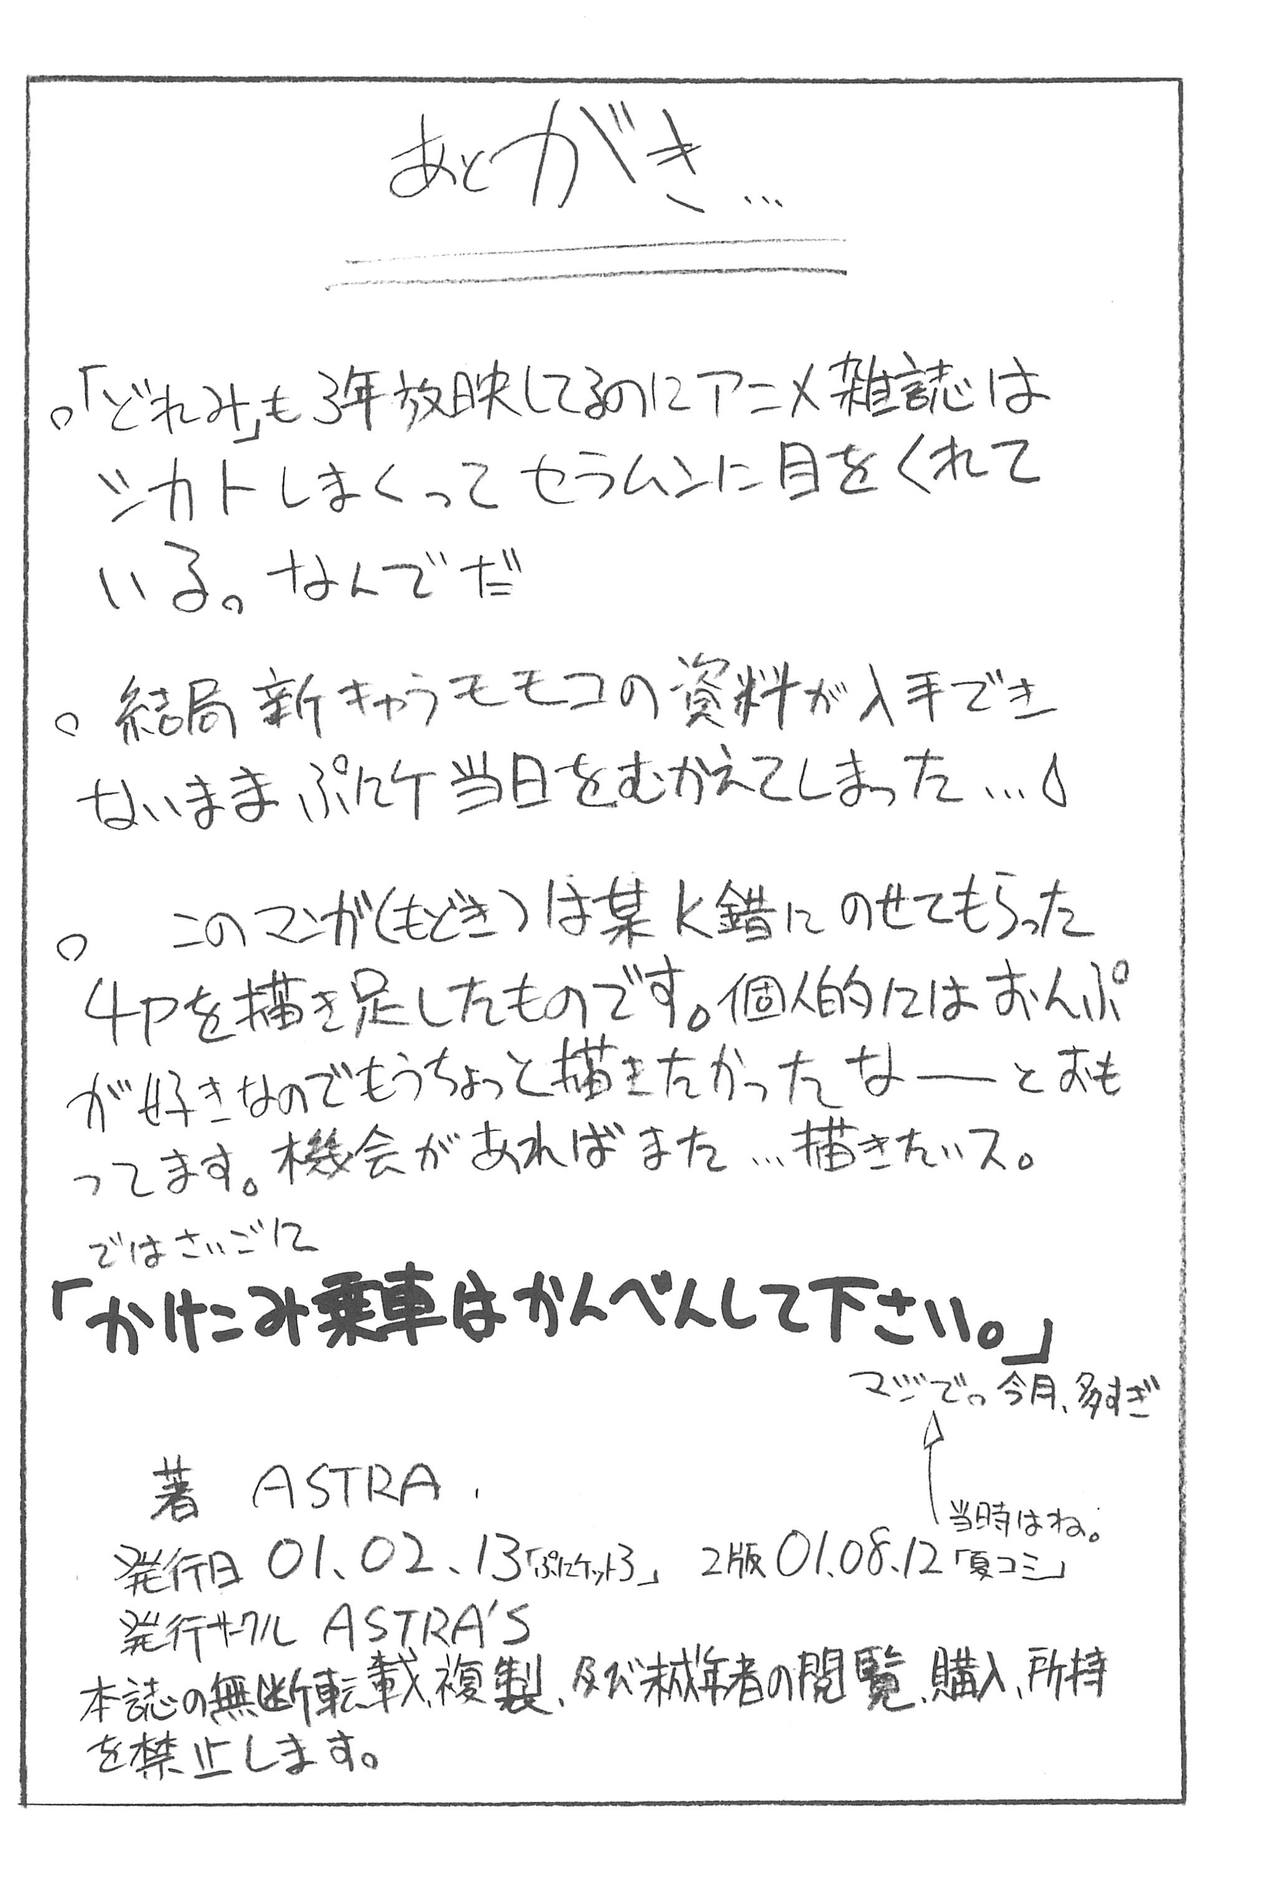 あとがき...
○「どれみ」も3年放映してるのにアニメ雑誌は
シカトしまくってセラムンに目をくれて
いる。なんでだ
○ 結局新キャラモモコの資料が入手でき
ないまま ぷにケ当日をむかえてしまった…
○ このマンガ(もどき)は某K錯にのせてもらった
4Pを描き足したものです。個人的にはおんぷ
が好きなのでもうちょっと描きたかったなーとおも
ってます。機会があればまた…描きたいス。
ではさいごに
「かけこみ乗車はかんべんして下さい。」
マジで。今月、多すぎ
当時はね。
著 ASTRA.
発行日 01.02.13「ぷにケット3」 2版 01.08.12「夏コミ」
発行サークル ASTRA'S
本誌の無断転載、複製、及び未成年者の閲覧、購入、所持
を禁止します。